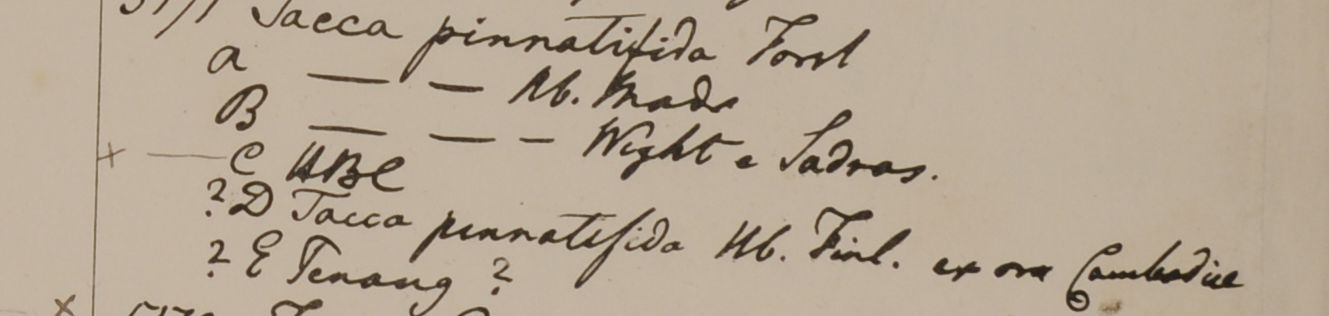 5171 Tacca pinnatifida Forst
a — — Hb. Madr
B — — — Wight e Sadras.
x — C HBC
? D Tacca pinnatifida Hb. Finl. ex ora Cambodiae
? E Penang ?
x